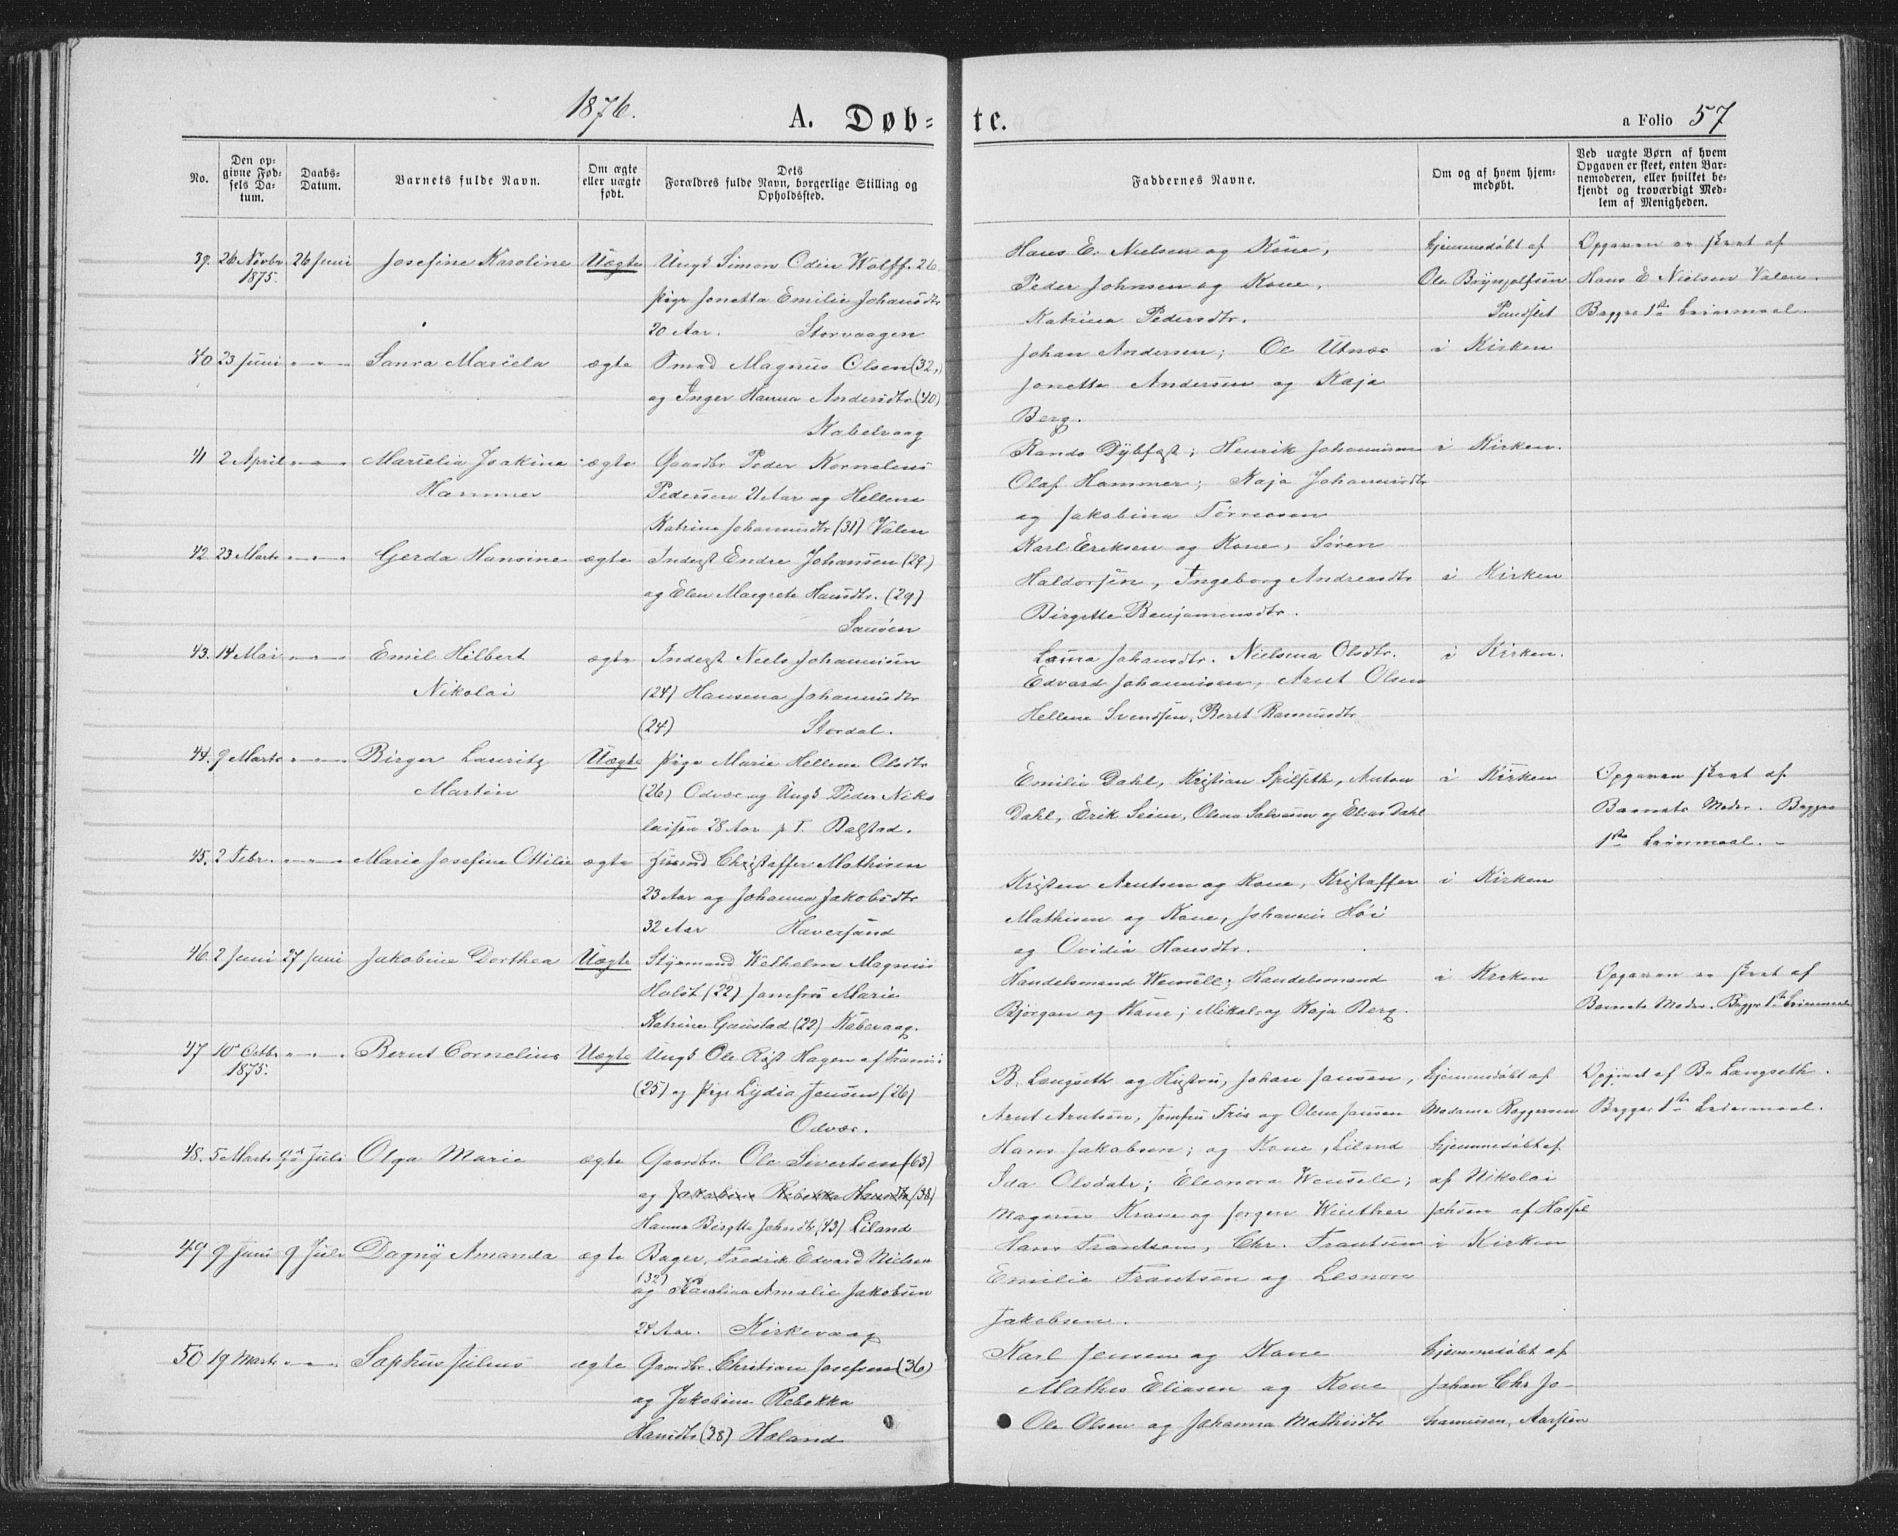 1876.
A. Døb=
te.
a Folio 57
No.
Den op-
givne Fød-
sels Da-
tum.
Daabs-
Datum.
Barnets fulde Navn.
Om ægte
eller uægte
født.
Dets
Forældres fulde Navn, borgerlige Stilling og
Opholdssted.
Faddernes Navne.
Om og af hvem hjem-
medøbt.
Ved uægte Børn af hvem
Opgaven er skeet, enten Bar-
nemoderen, eller hvilket be-
kjendt og troværdigt Med-
lem af Menigheden.
39. 26 Novbr 26 Juni Josefine Karoline Uægte Ungk Simon Odin Wolff. 26
1875.
Pige Jonetta Emilie Johansdtr
20 Aar. Storvaagen
Hans E. Nielsen og Kone,
Peder Johnsen og Kone,
Katrina Pedersdtr.
Hjemmedøbt af
Ole Brynjolfsen
Opgaven er skeet af
Hans E Nielsen Valen
Begges 1ste Leiermaal.
40 23 Juni Sanra Marcela ægte Smed Magnus Olsen (32,)
og Inger Hanna Andersdtr (40)
Kabelvaag
Johan Andersen; Ole Utnæs
Jonette Andersen og Kaja
Berg.
i Kirken
41 2 April Marselia Joakine ægte Gaardbr Peder Kornelius
Hammer Pedersen 21 Aar og Hellene
Katrine Johannisdtr (31) Valen
Rando Dybfest; Henrik Johannesen
Olaf Hammer; Kaja Johannisdtr
og Jakobina
i Kirken.
42. 23 Marts Gerda Hansine ægte Inderst Endre Johansen (29)
og Elen Margrete Hansdtr. (29)
Karl Eriksen og Kone, Søren
Haldorsen, Ingeborg Andreasdtr
Birgitte Benjaminsdtr.
i Kirken
43. 14 Mai Emil Hilbert ægte Inderst Niels Johannisen
Nikolai (24) Hansena Johannisdtr
(24) Stordal.
Laura Johansdtr. Nielsena Olsdtr.
Edvard Johannisen, Arnt Olsen
Hellene Svendsen, Beret Rasmusdtr
i Kirken.
44. 9 Marts Birger Lauritz Uægte Pige Marie Hellene Olsdtr
Martin (26) Odvær og Ungk Peder Niko
laisen 28 Aar p T. Balstad.
Emilie Dahl, Kristian Spilseth, Anton
Dahl, Erik Seien, Olena Salvesen og Elias Dahl
i Kirken
Opgaven skeet af
Barnets Moder. Begges
1ste Leiermaal.
45. 2 Febr. Marie Josefine Ottilie ægte Husmd Christoffer Mathisen
23 Aar og Johanna Jakobsdtr
32 Aar Haversand
Kristen Arntsen og Kone, Kristoffer
Mathisen og Kone, Johannis Høi
og Ovidia Hansdtr.
i Kirken
46. 2 Juni 27 Juni Jakobine Dorthea Uægte Styrmand Wilhelm Magnus
Holst (22) Jomfru Marie
Katrine Gaustad (22) Kabevaag.
Handelsmand Wensell; Handelsmand
Bjørgan og Kone; Mikal og Kaja Berg.
i Kirken
Opgaven er skeet af
Barnets Moder. Begges 1ste Leiermaal
47 10 Octbr Bernt Cornelius Uægte Ungk Ole Røst Hagen af
1875.
(25) og Pige Lydia Jensen (26)
Odvær.
B. Langseth og Hustru, Johan Jansen,
Arnt Arntsen, Jomfru Friis og Olene Jansen
Hjemmedøbt af
Madame Roggersen
Opgivet af B. Langseth.
Begges 1ste Leiermaal.
48. 5 Marts 9de Juli Olga Marie ægte Gaardbr. Ole Sivertsen (63)
og Jakobine Rebekka Hansdtr (38)
Hanna Birgitte Johnsdtr (43) Liland
Hans Jakobsen; og Kone, Lilend
Ida Olsdatr; Eleonora Wensell;
Magnus Krane og Jørgen Winther
Hjemmedøbt af
af Nikolai
Johsen af Hassel
49 9 Juni 9 Juli Dagny Amanda ægte Bager. Fredrik Edvard Nielsen
(32)
og Karolina Amalie Jakobsen
28 Aar. Kirkevaag
Hans Frantsen, Chr. Frantsen
Emilie Frantsen og Leonore
Jakobsen.
i Kirken
50 19 Marts Sophus Julius ægte Gaardbr. Christian Josefsen (36)
og Jakobine Rebekka
Hansdtr (38) Høland
Karl Jensen og Kone
Mathis Eliasen og Kone
Ole Olsen og Johanna Mathisdtr
Hjemmedøbt af
Johan Chr Jo-
hannisen,